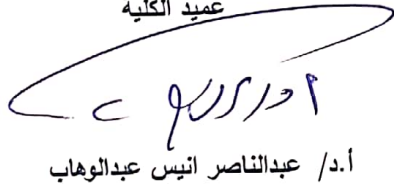 عميد الكليه
أ.د/ عبدالناصر انيس عبدالوهاب